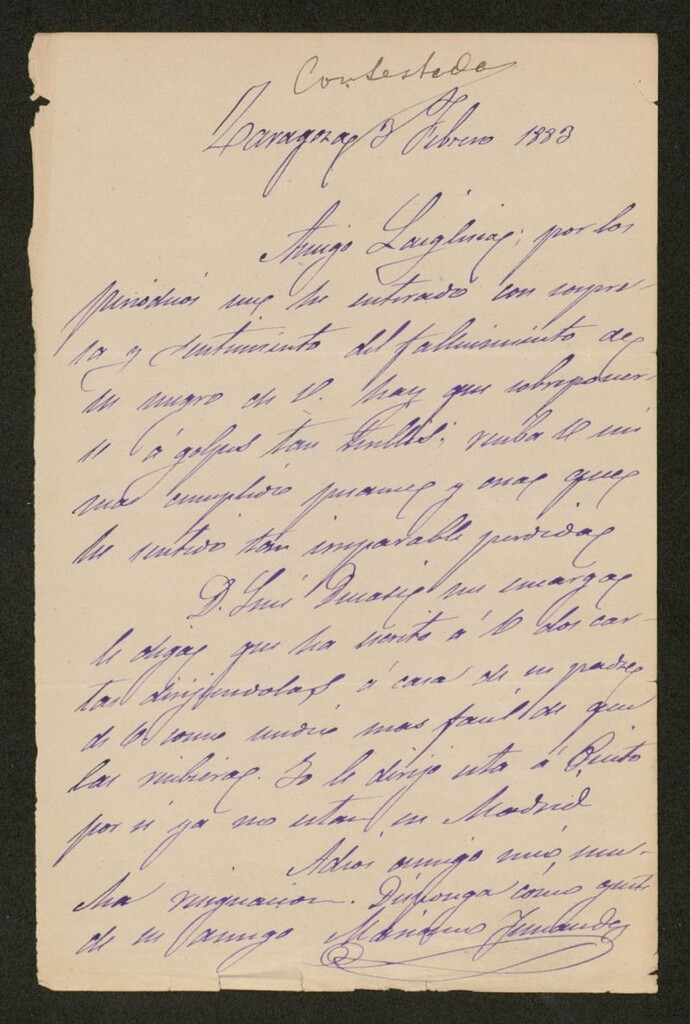 Contestada
Zaragoza 3 Febrero 1883
Amigo Laiglesia; por los
periodicos me he enterado con sorpre-
sa y sentimiento del fallecimiento de
su suegro de V. hay que sobreponer-
se á golpes tan terribles; reciba V mi
mas cumplido pesame y crea que
he sentido tan irreparable perdida
D. Luis me encarga
le diga que ha escrito á V dos car-
tas dirijiendolas á casa de su padre
de V como medio mas facil de que
las recibiera. Yo le dirijo esta á
por si ya no esta en Madrid
Adios amigo mio, mu-
cha resignacion. Disponga como guste
de su amigo Mariano Fernandez